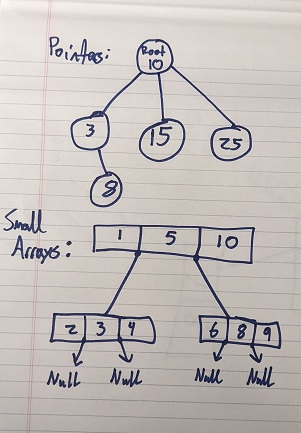 Pointers:
Root
10
3 15 25
8
Small
Arrays:
1 5 10
2 3 4 6 8 9
Null Null Null Null